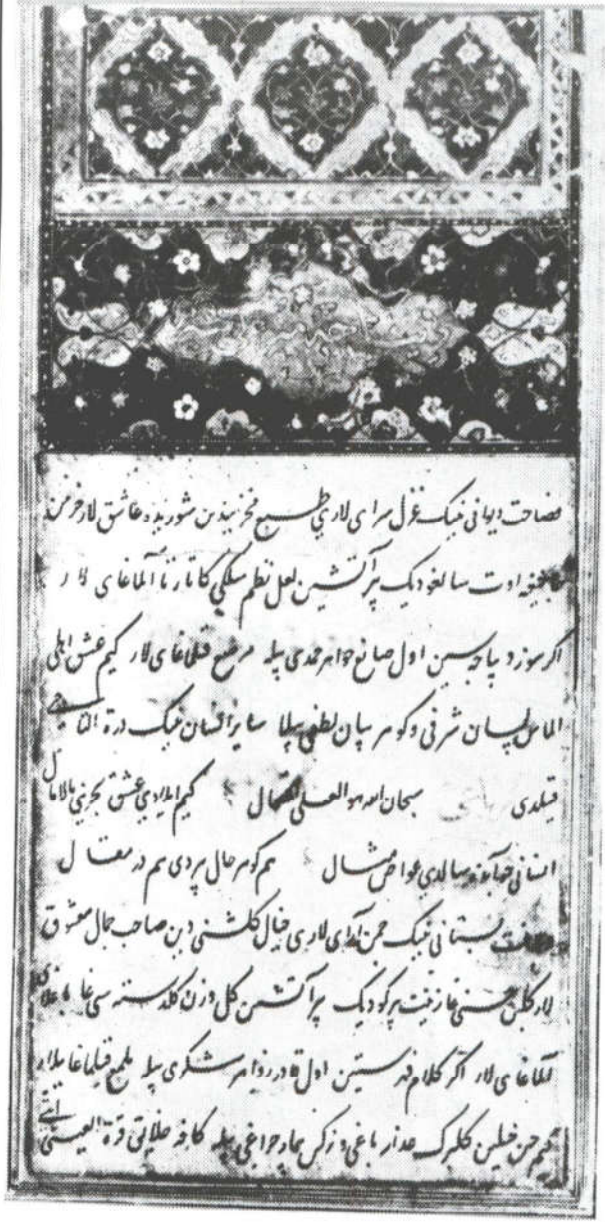 فصاحت دیوانی نینک غزل سرای لاری طبع مخزنیدین شورنده عاشق لار خرمن
اوت سالغودیک پر آتشین لعل نظم سلکی کا تارتا آلماغای لار
اکر سوز دیباجه سین اول صانع جواهر حمدی بیله مرصع قیلماغای لار کیم عشق اهلی
الماس لسان شرفی و کوهر بیان لطفی بیلا سایر انسان نینک درة التاجی
قیلدی سبحان الله هو العلی المتعال کیم ایلادی عشق بحرینی مالامال
انسانی سالدی غواص مثال هم کوهر حال بیردی هم در مقال
بستانی نینک چمن آرای لاری خیال کلشنی دین صاحب جمال معشوق
لار کلبن حسنی غا زینت بیرکودیک پر آتشین کل وزن کلدسته سی غا باغلای
آلماغای لار اکر کلام فهرستین اول قادر زواهر شکری بیله ملمع قیلماغایلار
کیم حسن خیلین کلبرک عذار باغی و نرکس بیمار چراغی بیله کافه خلایق قرة العینی